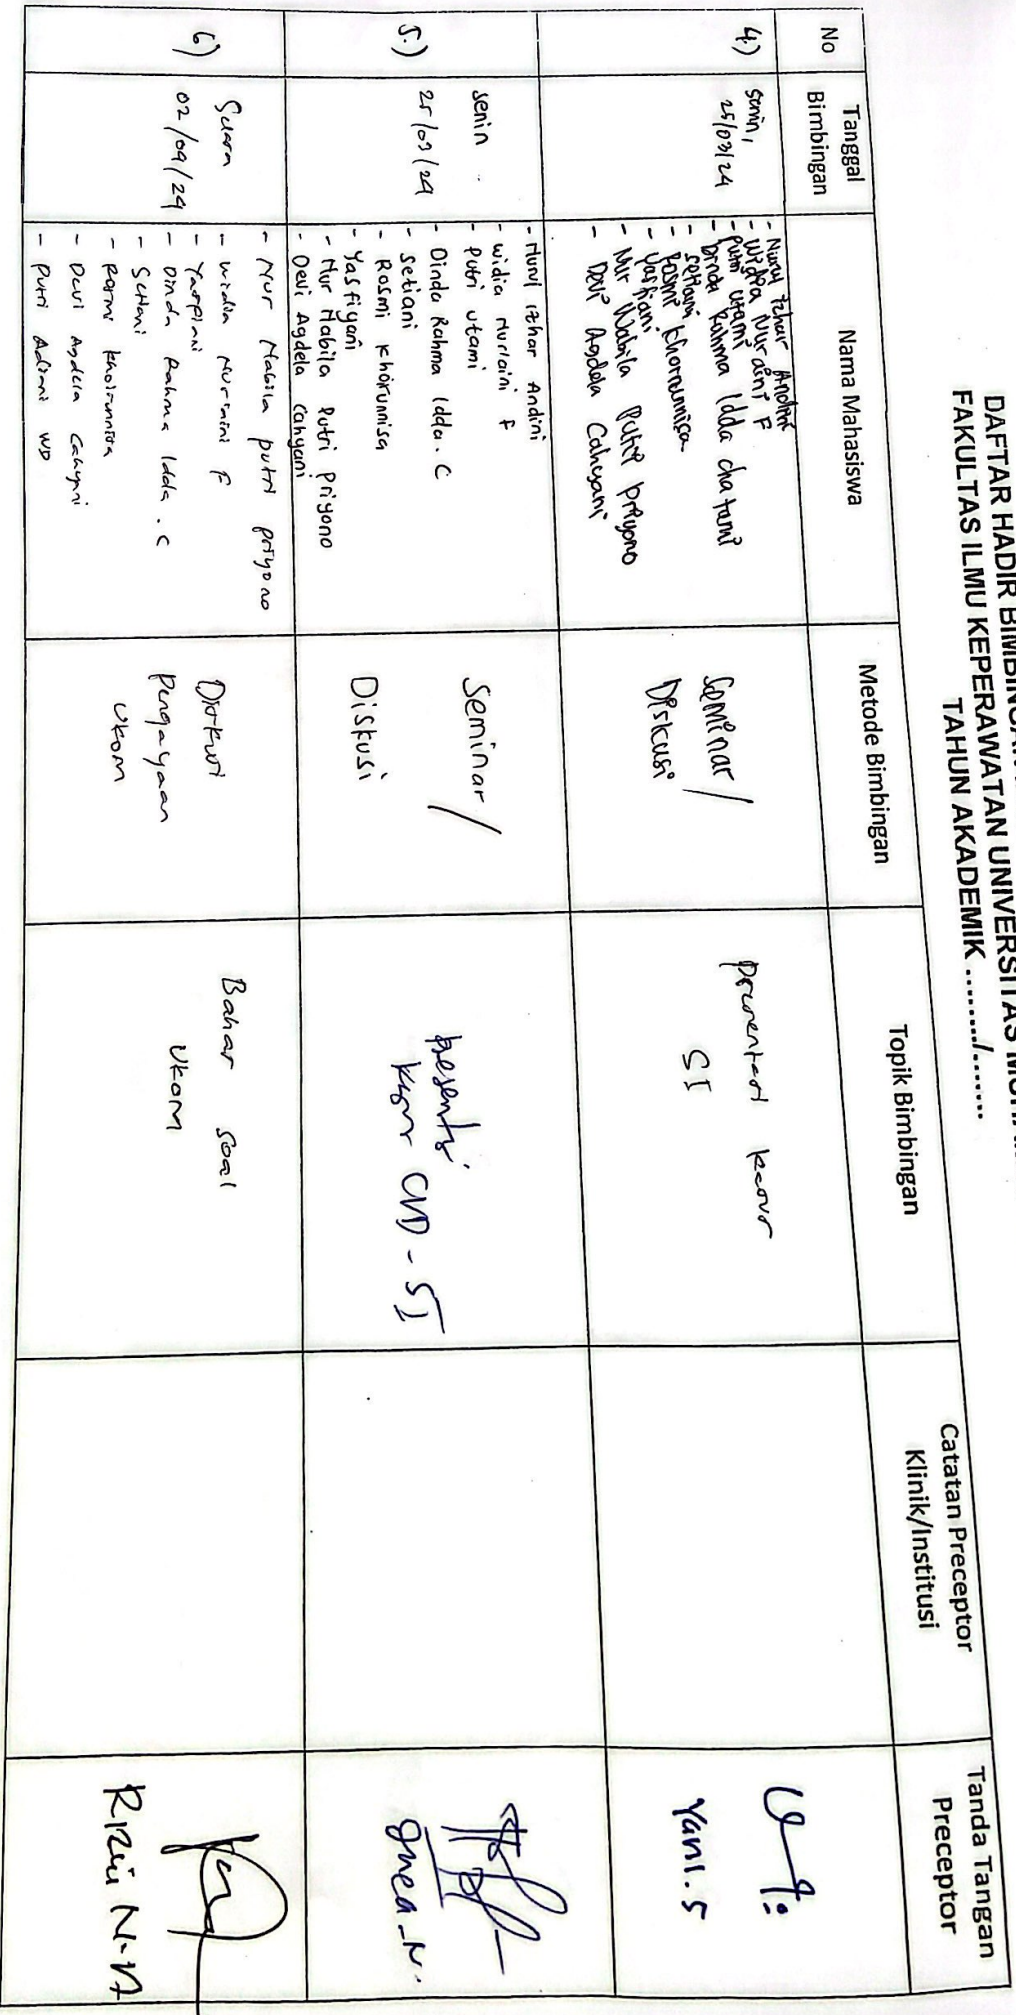 DAFTAR HADIR BIMBINGAN
FAKULTAS ILMU KEPERAWATAN UNIVERSITAS
TAHUN AKADEMIK ......../.......
No
Tanggal Bimbingan
Nama Mahasiswa
Metode Bimbingan
Topik Bimbingan
Catatan Preceptor Klinik/Institusi
Tanda Tangan Preceptor
4.)
Senin,
25/03/24
- Nurul Izhar Andini
- Widia Nuraini F
- Putri Utami
- Dinda Rahma Idda chatami
- Setiani
- Rosmi Khorunnisa
- Yasfiani
- Nur Nabila Putri priyono
- Devi Agdela Cahyani
Seminar /
Diskusi
Presentasi kasus
SI
Yani. S
5.)
senin
25/03/24
- Nurul Izhar Andini
- Widia Nuraini F
- Putri utami
- Dinda Rahma Idda. C
- Setiani
- Rosmi khoirunnisa
- Yasfiyani
- Nur Nabila Putri Priyono
- Devi Agdela Cahyani
Seminar /
Diskusi
Presentasi
Kasus CVD - SI
6)
Selasa
02/04/24
- Nur Nabila putri priyono
- Widia Nuraini F
- Yaspiani
- Dinda Rahma Idda. C
- Setiani
- Rosmi khoirunnisa
- Devi Agdela cahyani
- Putri Adiani WD
Diskusi
Pengayaan
Ukom
Bahas soal
Ukom